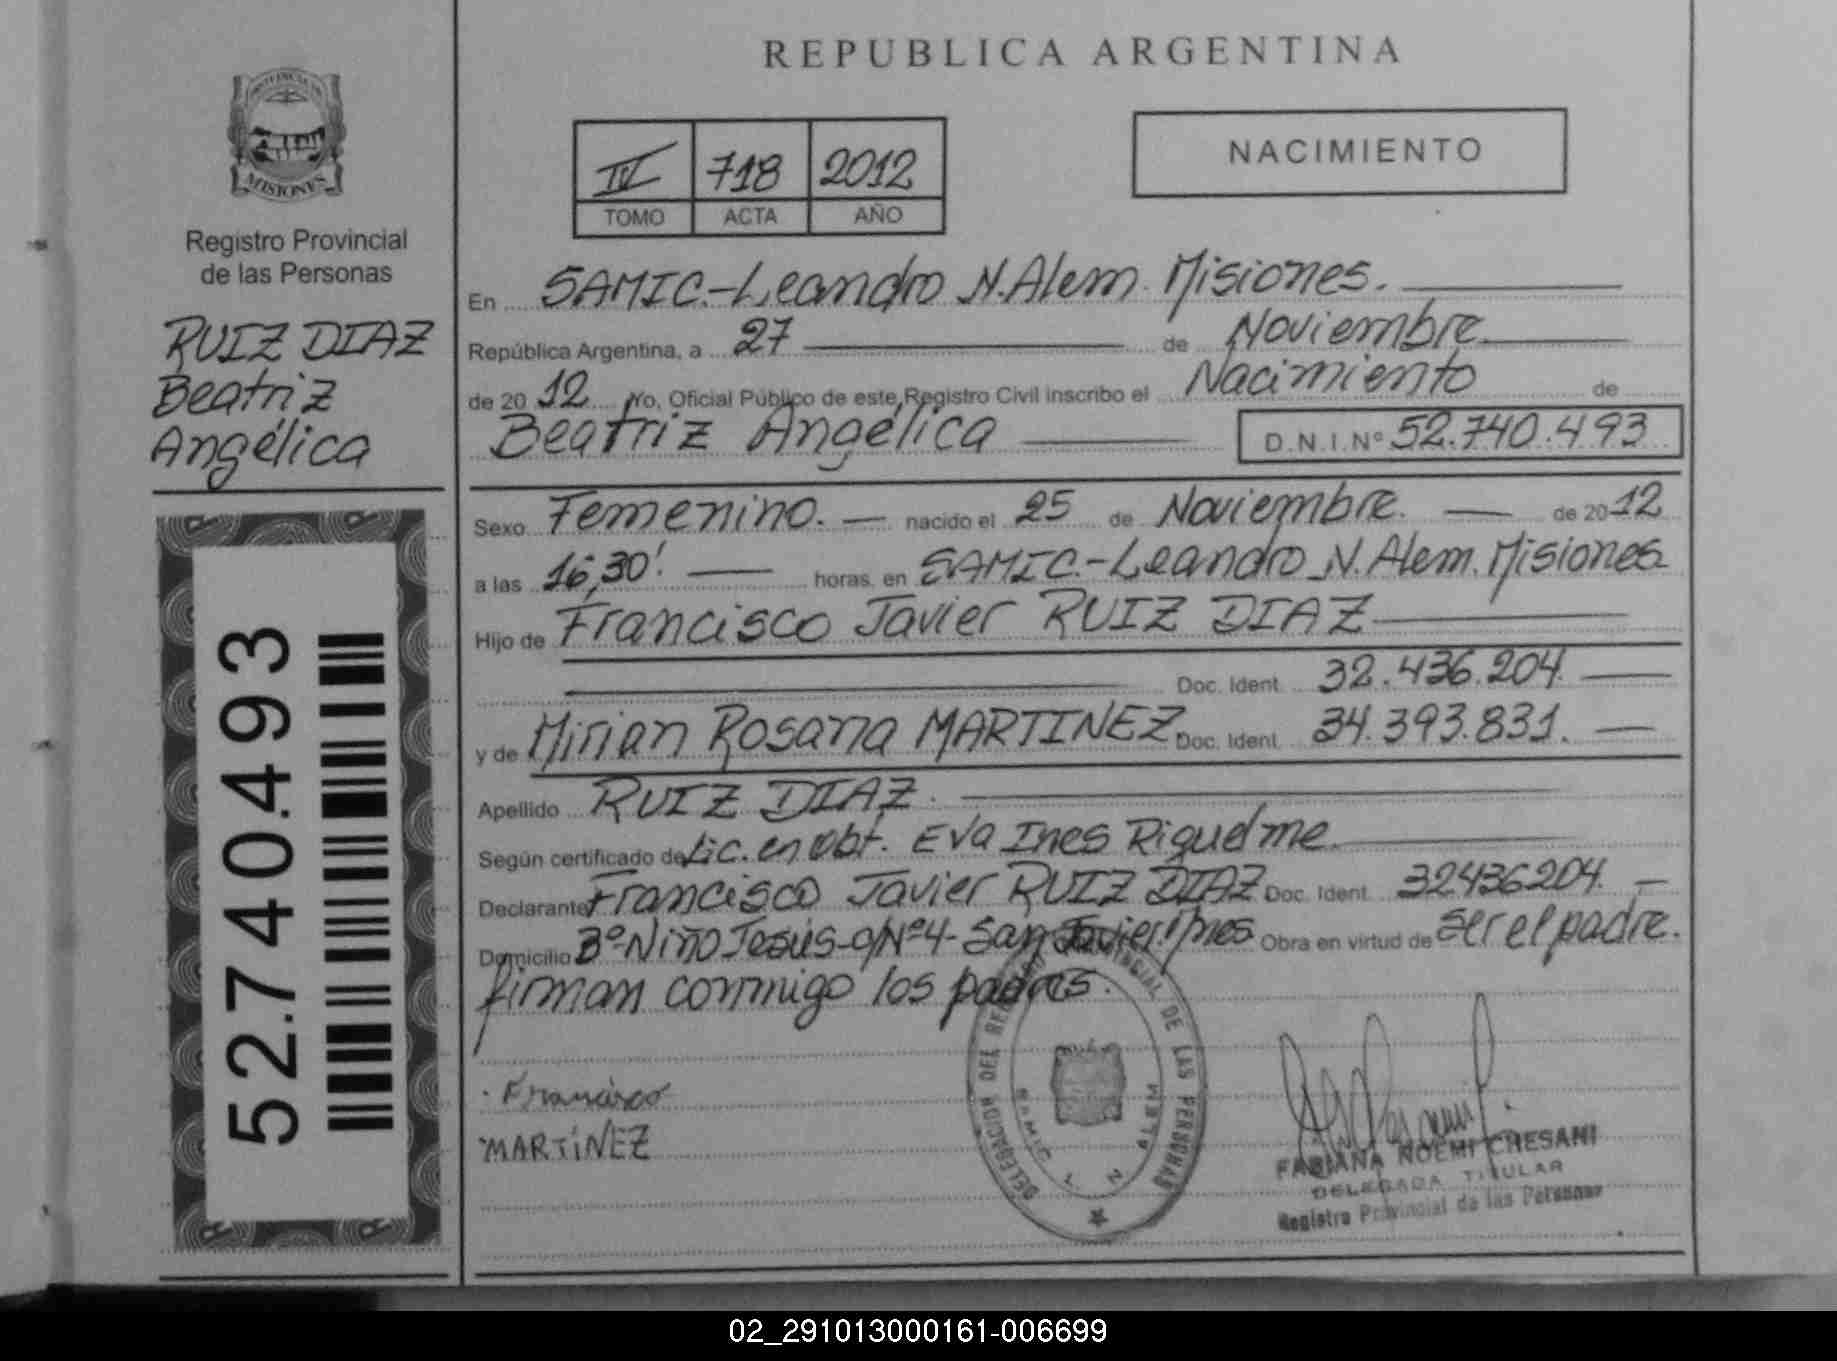 REPUBLICA ARGENTINA
PROVINCIA DE
MISIONES
Registro Provincial
de las Personas
RUIZ DIAZ
Beatriz
Angélica
52.740.493
IV 718 2012
TOMO ACTA AÑO
NACIMIENTO
En SAMIC.-Leandro N. Alem. Misiones.
República Argentina, a 27 de Noviembre
de 2012 Yo, Oficial Público de este Registro Civil inscribo el Nacimiento de
Beatriz Angélica D.N.I. Nº 52.740.493
Sexo Femenino. nacido el 25 de Noviembre. de 2012
a las 16,30'. horas. en SAMIC.-Leandro N. Alem. Misiones
Hijo de Francisco Javier RUIZ DIAZ
Doc. Ident. 32.436.204.
y de Mirian Rosana MARTINEZ. Doc. Ident. 34.393.831.
Apellido RUIZ DIAZ.
Según certificado de Lic. en Obt. Eva Ines Riquelme.
Declarante Francisco Javier RUIZ DIAZ Doc. Ident. 32436204.
Domicilio Bº-Niño Jesús-c/Nº4-San Javier. Mnes Obra en virtud de ser el padre.
firman conmigo los padres.
Francisco
MARTiNEZ
DELEGACION DEL REGISTRO PROVINCIAL DE LAS PERSONAS
SAMIC L. N. ALEM
FABIANA NOEMI CHESANI
DELEGADA TITULAR
Registro Provincial de las Personas
02_291013000161-006699